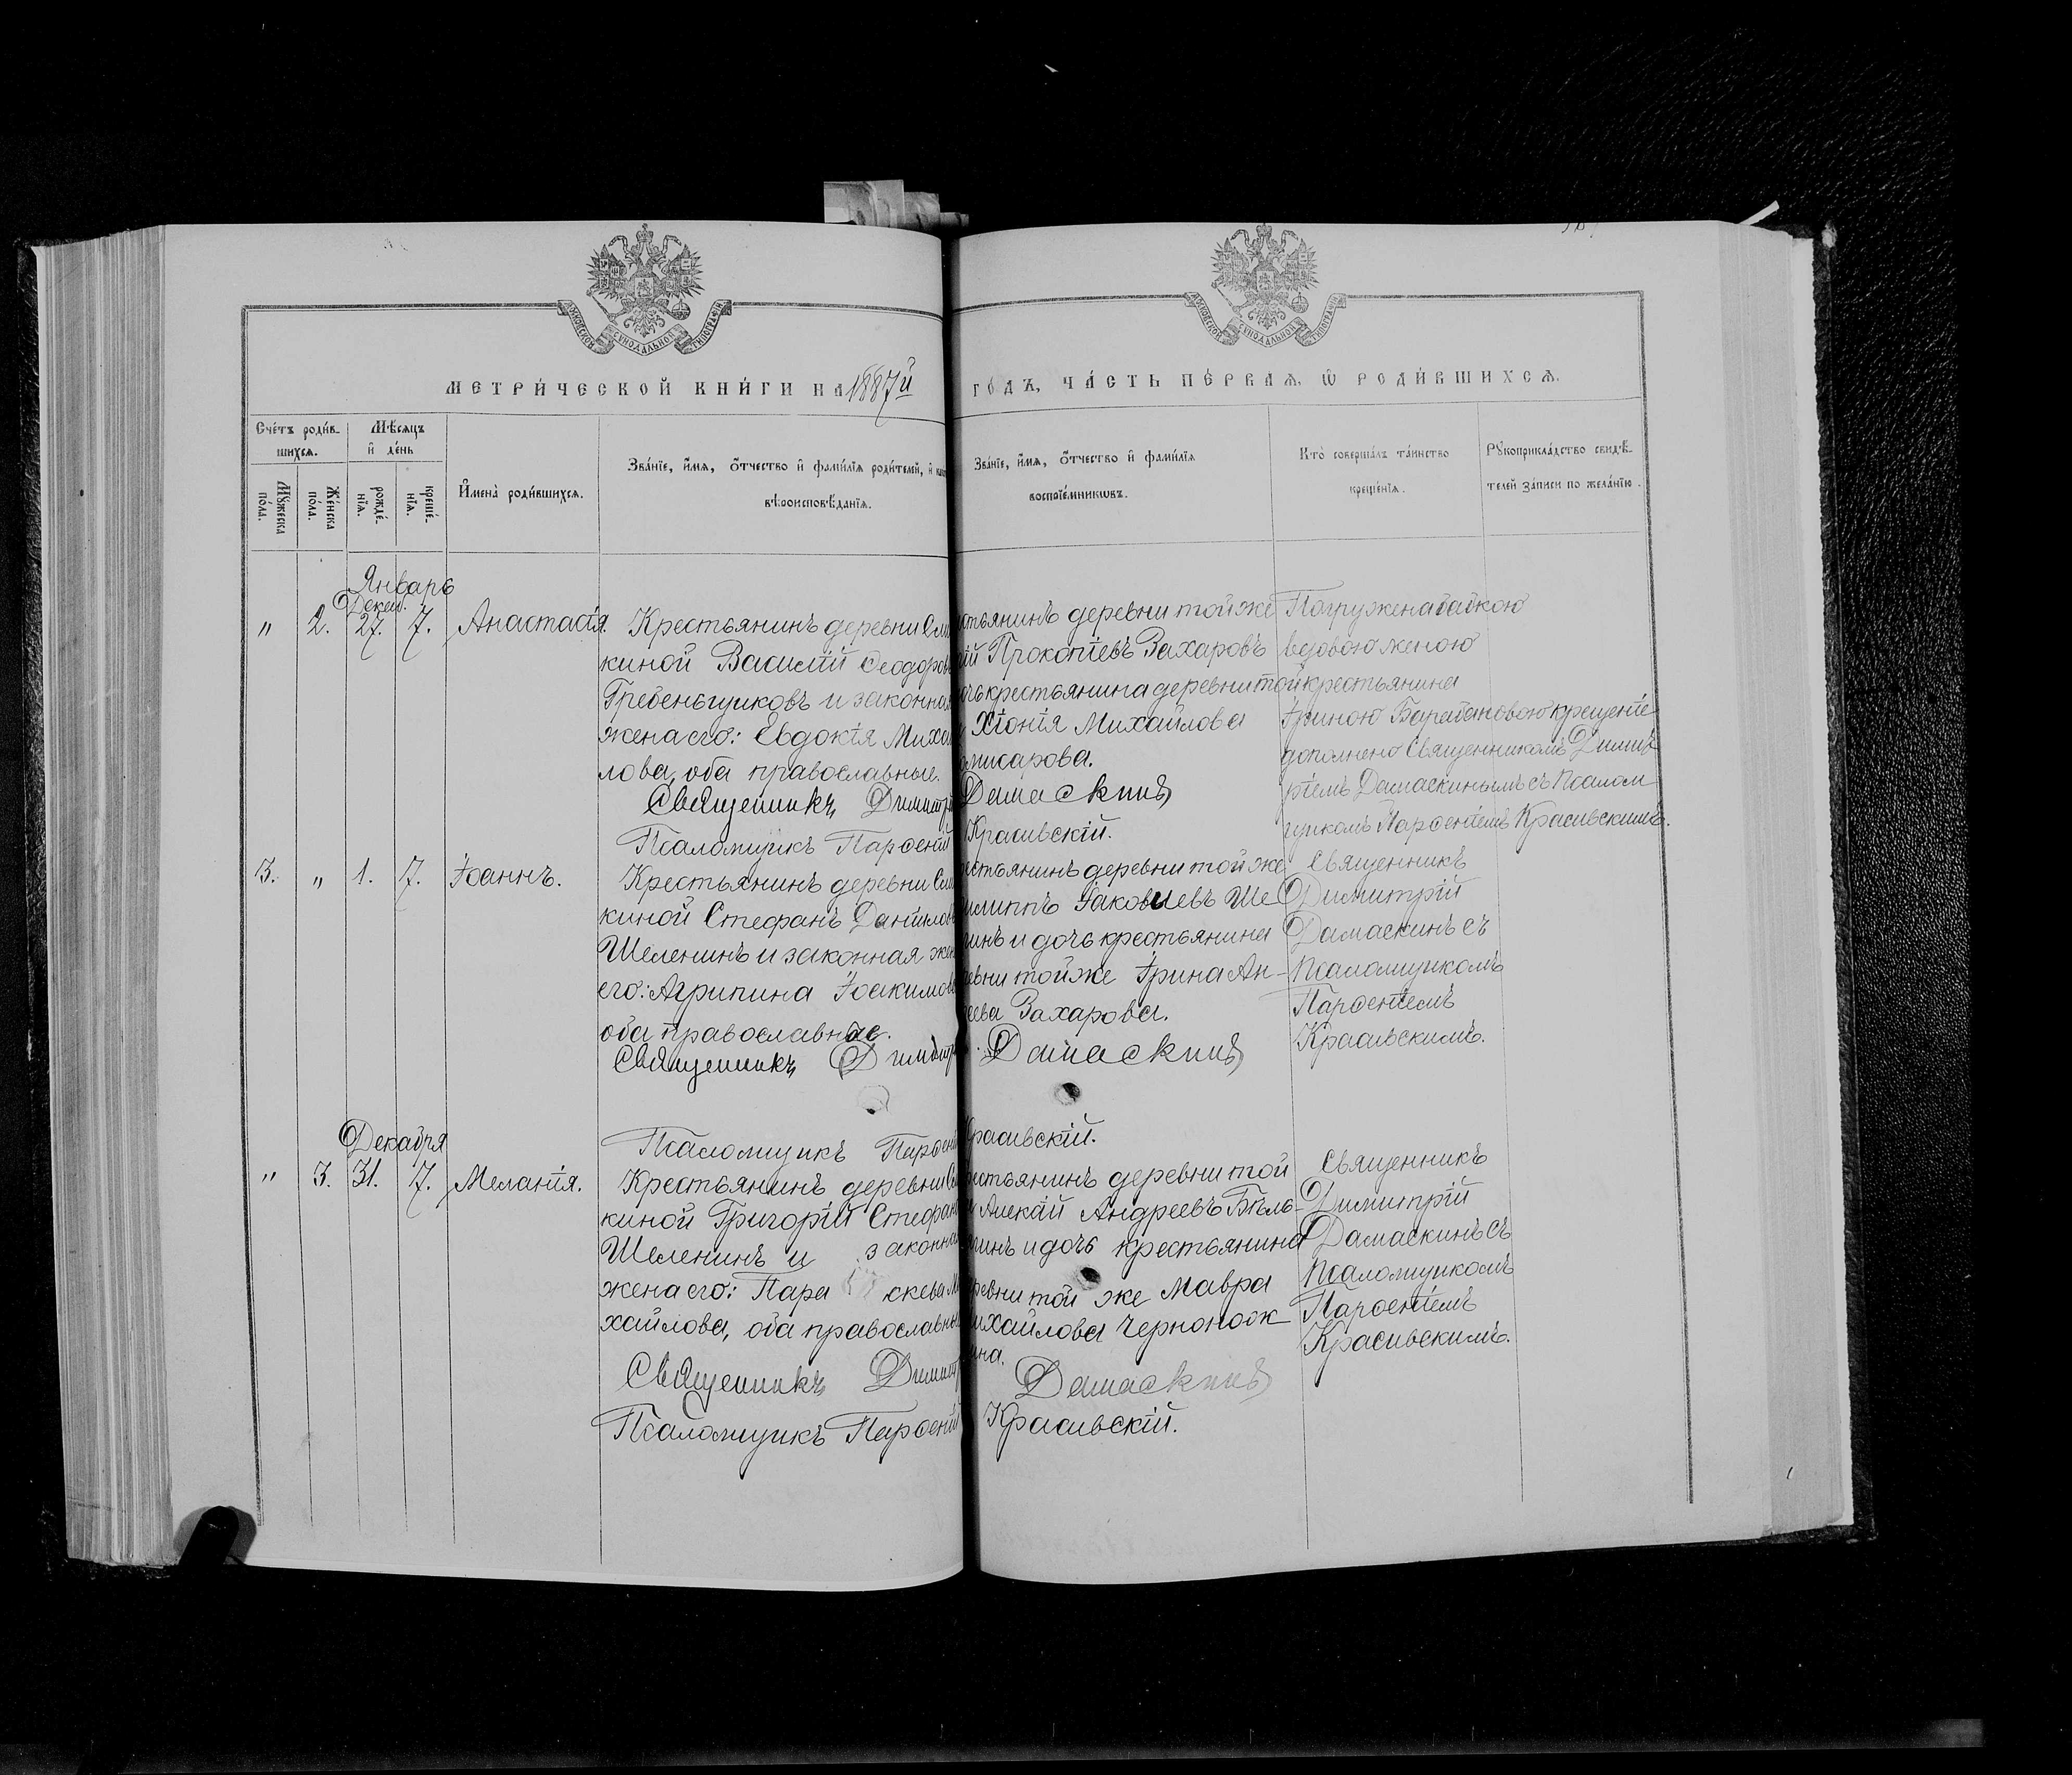 МОСКОВСКОЙ СѴНОДАЛЬНОЙ ТИПОГРАФІИ
МОСКОВСКОЙ СѴНОДАЛЬНОЙ ТИПОГРАФІИ
МЕТРИ́ЧЕСКОЙ КНИ́ГИ НА 1887й ГО́ДЪ, ЧА́СТЬ ПЕ́РВАѦ, Ѡ҆ РОДИ́ВШИХСѦ.
Сче́тъ роди́в-
шихсѧ.
Мꙋ́жеска по́ла.
Же́нска по́ла.
Мѣ́сѧцъ
и҆ де́нь
рожде́-
нїѧ.
креще́-
нїѧ.
И҆мена̀ роди́вшихсѧ.
Зва́нїе, и҆́мѧ, ѻ҆́тчество и҆ фами́лїѧ роди́телей, и҆
вѣроисповѣ́данїѧ.
Зва́нїе, и҆́мѧ, ѻ҆́тчество и҆ фами́лїѧ
воспрїе́мникѡвъ.
Кто̀ соверша́лъ та́инство
креще́нїѧ.
Рꙋкоприкла́дство свидѣ́-
телей за́писи по жела́нїю.
Январь
Декаб.
" 2. 27. 7. Анастасія.
Крестьянинъ деревни
киной Василій Ѳеодоров
Гребеньщиковъ и законная
жена его: Евдокія Михай
лова, оба православные.
Священникъ Димитрій Дамаскинъ
Псаломщикъ Парѳеній Красивскій.
стьянинъ деревни той же
ій Прокопіевъ Захаровъ
очь крестьянина деревни той
Хіонія Михайлова
мисарова.
Погружена бабкою
вдовою женою
крестьянина
Іриною Барабановою крещеніе
дополнено Священникомъ Димит
ріемъ Дамаскинымъ съ Псалом
щикомъ Парѳеніемъ Красивскимъ.
3. " 1. 7. Іоаннъ.
Крестьянинъ деревни
киной Стефанъ Данилов
Шеленинъ и законная жена
его: Агрипина Іоакимова
оба православные.
Священникъ Димитрій Дамаскинъ
Псаломщикъ Парѳеній Красивскій.
естьянинъ деревни той же
илиппъ Іаковлевъ Ше
нинъ и дочь крестьянина
евни той же Ірина Ан-
еева Захарова.
Священникъ
Димитрій
Дамаскинъ съ
Псаломщикомъ
Парѳеніемъ
Красивскимъ.
Декабря
" 3. 31. 7. Меланія.
Крестьянинъ деревни
киной Григорій Стефанов
Шеленинъ и законная
жена его: Параскева Ми
хайлова, оба православные
Священникъ Димитрій Дамаскинъ
Псаломщикъ Парѳеній Красивскій.
рестьянинъ деревни той
Алексій Андреевъ Бѣль-
нинъ и дочь крестьянина
ревни той же Мавра
ихайлова Чернонож
ина.
Священникъ
Димитрій
Дамаскинъ съ
Псаломщикомъ
Парѳеніемъ
Красивскимъ.